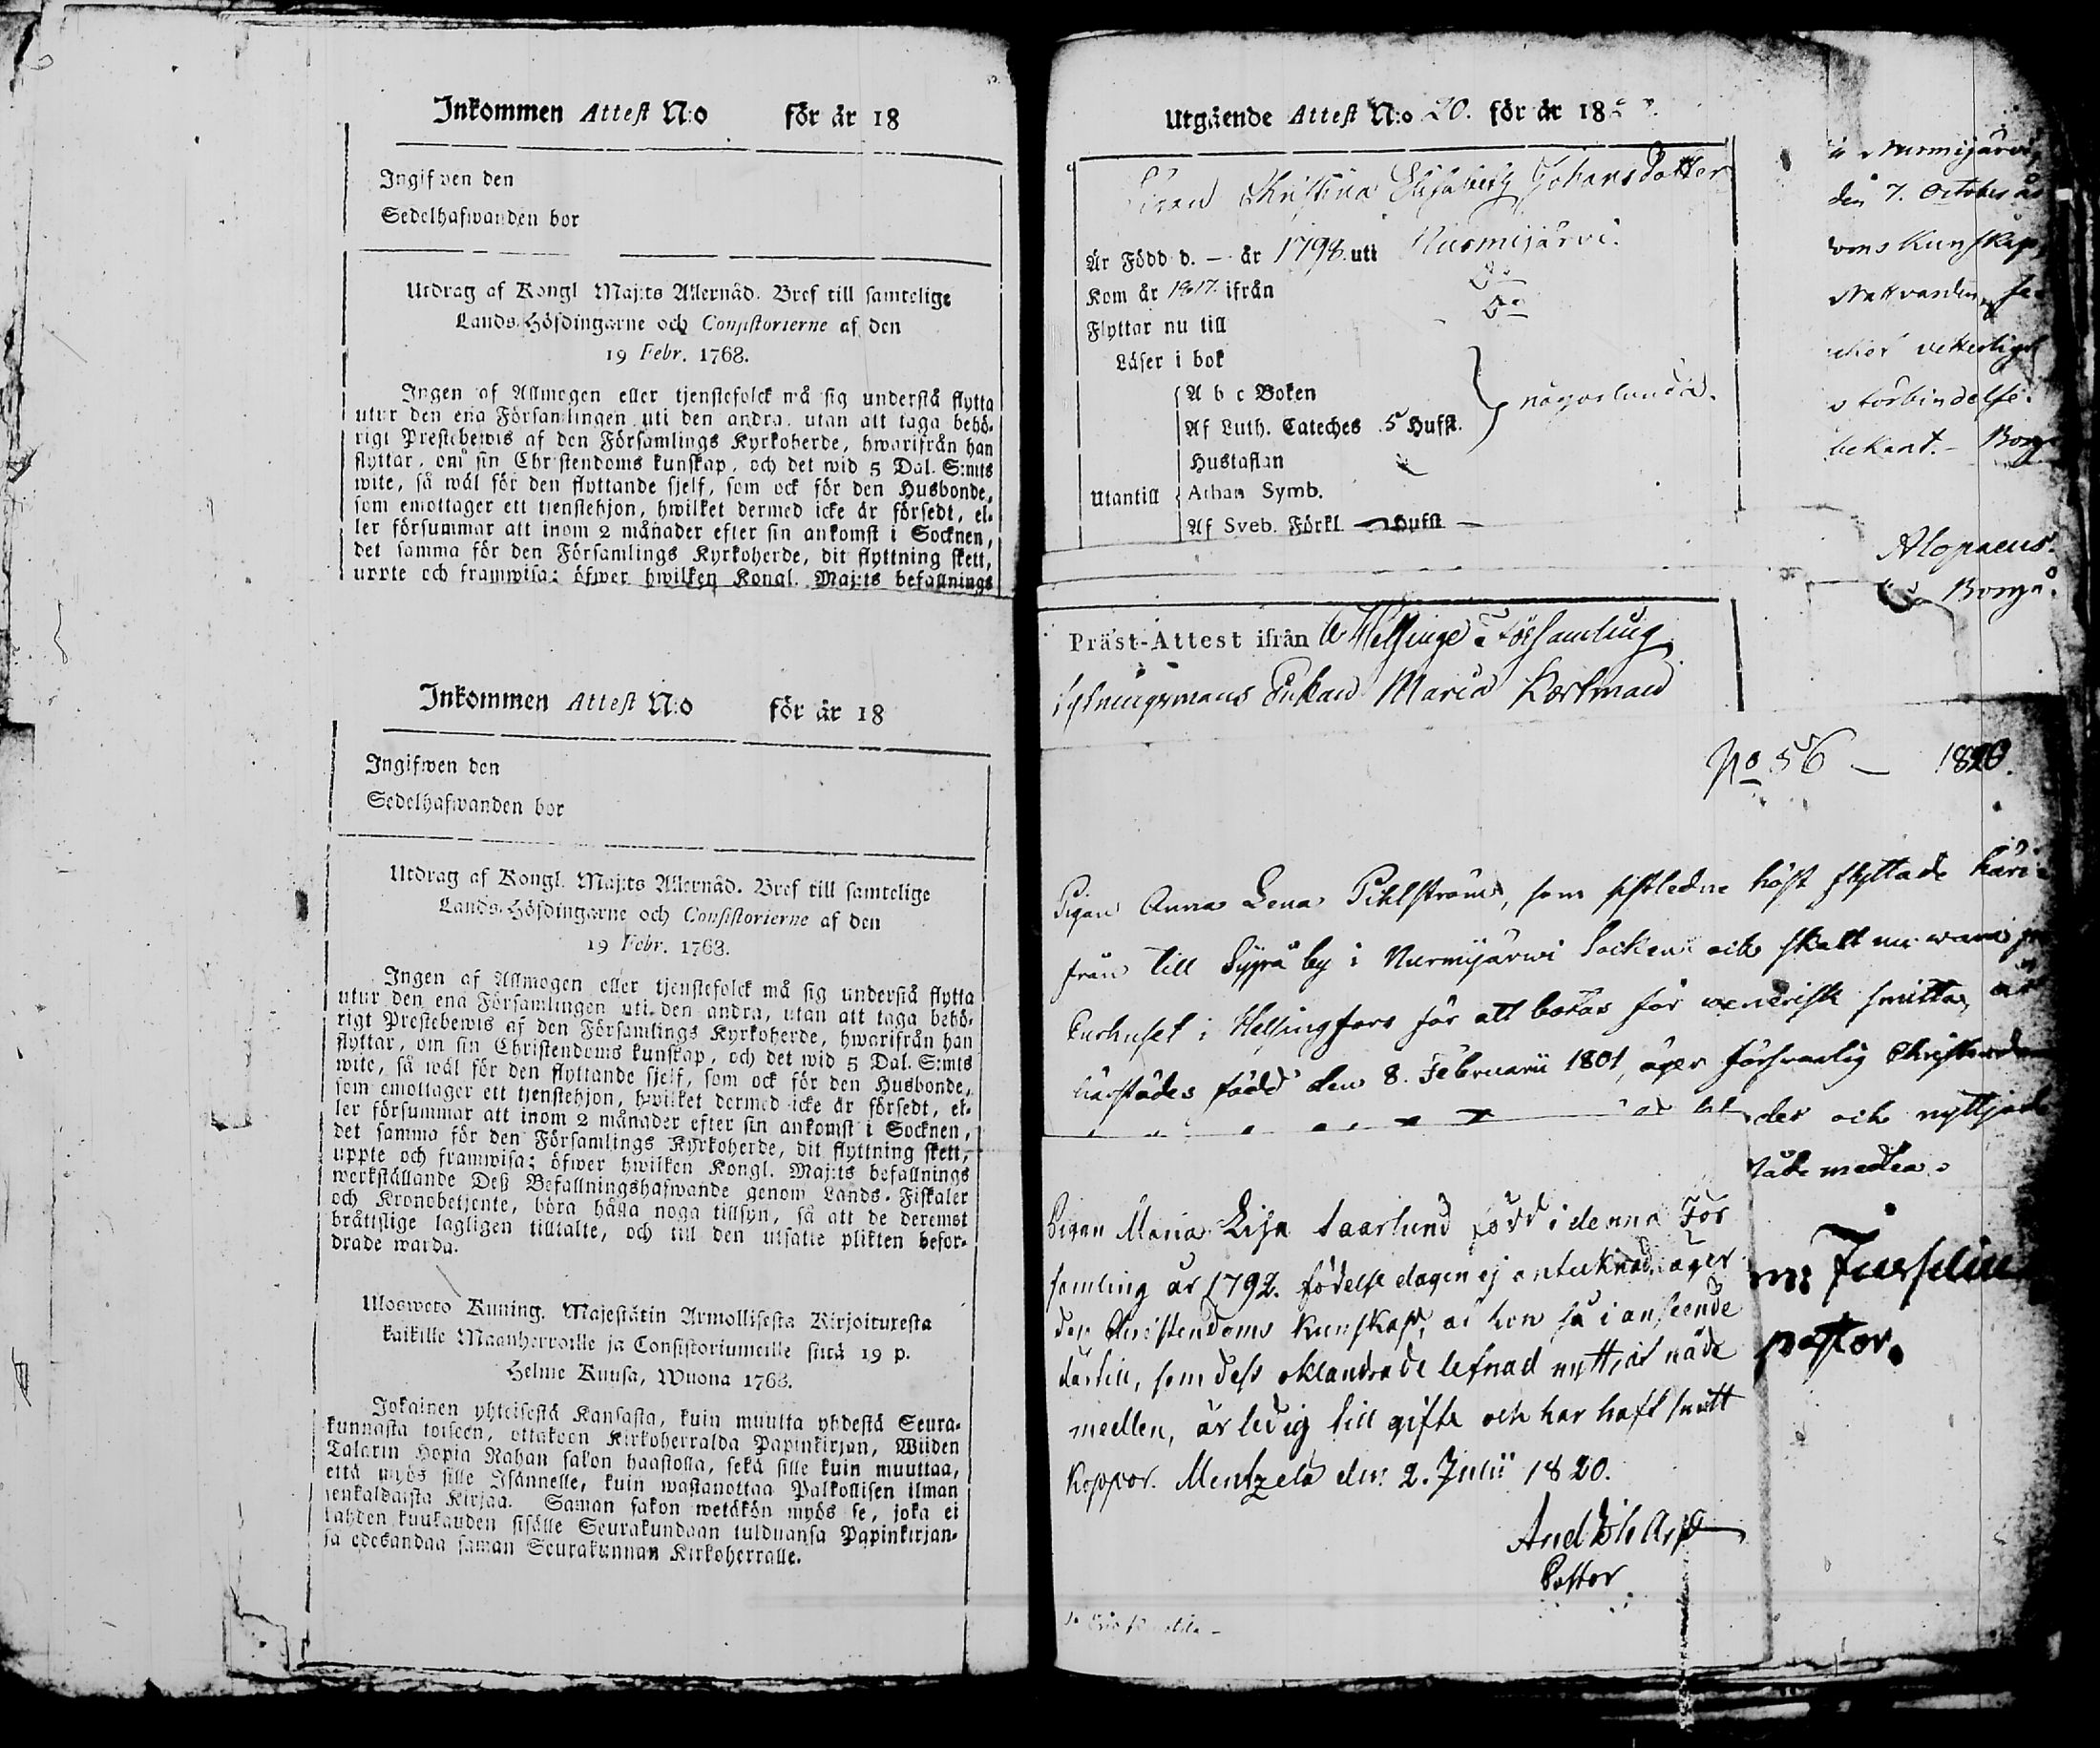 Inkommen Attest N:o för år 18
Ingifven den
Sedelhafwanden bor
Utdrag af Kongl Maj:ts Allernåd. Bref till samtelige
Lands-Höfdingarne och Consistorierne af den
19 Febr. 1768.
Ingen af Allmogen eller tjenstefolck må sig understå flytta
utur den ena Församlingen uti den andra, utan att taga behö-
rigt Prestebewis af den Församlings Kyrkoherde, hwarifrån han
flyttar, om sin Christendoms kunskap, och det wid 5 Dal. S:mts
wite, så wäl för den flyttande sjelf, som ock för den Husbonde,
som emottager ett tjenstehjon, hwilket dermed icke är försedt, el-
ler försummar att inom 2 månader efter sin ankomst i Socknen,
det samma för den Församlings Kyrkoherde, dit flyttning skett,
uppte och framwisa; öfwer hwilken Kongl. Maj:ts befallnings
Inkommen Attest N:o för år 18
Ingifwen den
Sedelhafwanden bor
Utdrag af Kongl. Maj:ts Allernåd. Bref till samtelige
Lands-Höfdingarne och Consistorierne af den
19 Febr. 1768.
Ingen af Allmogen eller tjenstefolck må sig understå flytta
utur den ena Församlingen uti den andra, utan att taga behö-
rigt Prestebewis af den Församlings Kyrkoherde, hwarifrån han
flyttar, om sin Christendoms kunskap, och det wid 5 Dal. S:mts
wite, så wäl för den flyttande sjelf, som ock för den Husbonde,
som emottager ett tjenstehjon, hwilket dermed icke är försedt, el-
ler försummar att inom 2 månader efter sin ankomst i Socknen,
det samma för den Församlings Kyrkoherde, dit flyttning skett,
uppte och framwisa; öfwer hwilken Kongl. Maj:ts befallnings
werkställande Deß Befallningshafwande genom Lands-Fiskaler
och Kronobetjente, böra hålla noga tillsyn, så att de deremot
bråttslige lagligen tilltalte, och till den utsatte plikten befor-
drade warda.
Ulosweto Kuning. Majestätin Armollisesta Kirjoituxesta
kaikille Maanherroille ja Consistoriumeille siitä 19 p.
Helme Kuusa, Wuona 1768.
Jokainen yhteisestä Kansasta, kuin muutta yhdestä Seura-
kunnasta toiseen, ottakoon Kirkoherralda Papinkirjan, Wiiden
Talarin Hopia Rahan sakon haastolla, sekä sille kuin muuttaa,
että myös sille Isännelle, kuin wastanottaa Palkollisen ilman
senkaldaista Kirjaa. Saman sakon wetäkön myös se, joka ei
kahden kuukauden sisälle Seurakundaan tulduansa Papinkirjan-
sa edesandaa saman Seurakunnan Kirkoherralle.
Utgående Attest N:o 20. för år 18
Christina Elisabeth Johansdotter
Är Född d. — år 1798. uti Nurmijärvi.
Kom år 1817. ifrån Do
Flyttar nu till Do
Läser i bok
A b c Boken
Af Luth. Cateches 5 Hufst. någorlunda.
Hustaflan
Utantill Athan Symb.
Af Sveb. Förkl — Hufst —
Nurmijärvi,
den 7. October
Kunskap,
Nattvarden
vetterligt
förbindelse.
bekant. — Borgå
Alopaeus.
Borgå.
Präst-Attest ifrån Helsinge Församling
Enkan Maria
No 56 — 1820.
Pigan Anna Lena Pihlström, som sistledne höst flyttade häri-
från till Syrjä by i Nurmijärwi Socken och skall nu wara
Curhuset i Helsingfors för att botas för venerisk smitta, är
härstädes född den 8. Februarii 1801, äger försvarlig Christendom
der och nyttjade
Nådemedlen.
Pastor.
Pigan Maria Lisa Saarlund född i denna För
samling år 1792. födelse dagen ej antecknad, äger
den Christendoms kunskap, at hon så i anseende
dertill, som dess oklandrade lefnad nyttjat nåde
medlen, är ledig till gifte och har haft smått
koppor. Mentzelä den 2. Julii 1820.
And Joh Arp
Pastor